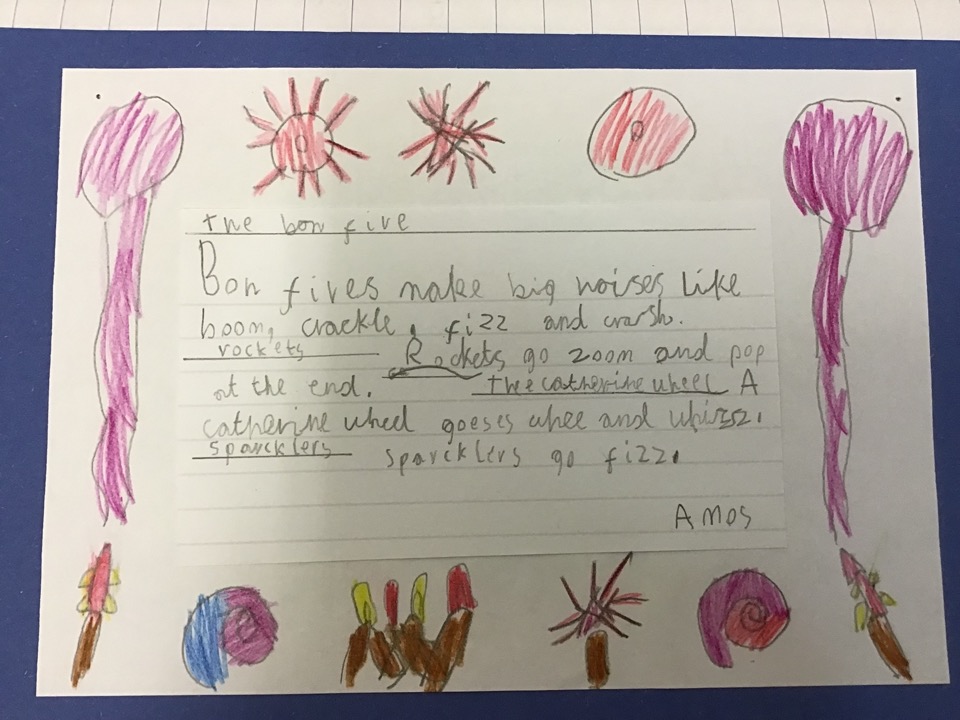 the bon fire
Bon fires make big noises like
boom, crackle, fizz and crarsh.
rockets Rockets go zoom and pop
at the end. the catherine wheel A
catherine wheel goeses whee and whizzz.
sparcklers sparcklers go fizz.
Amos